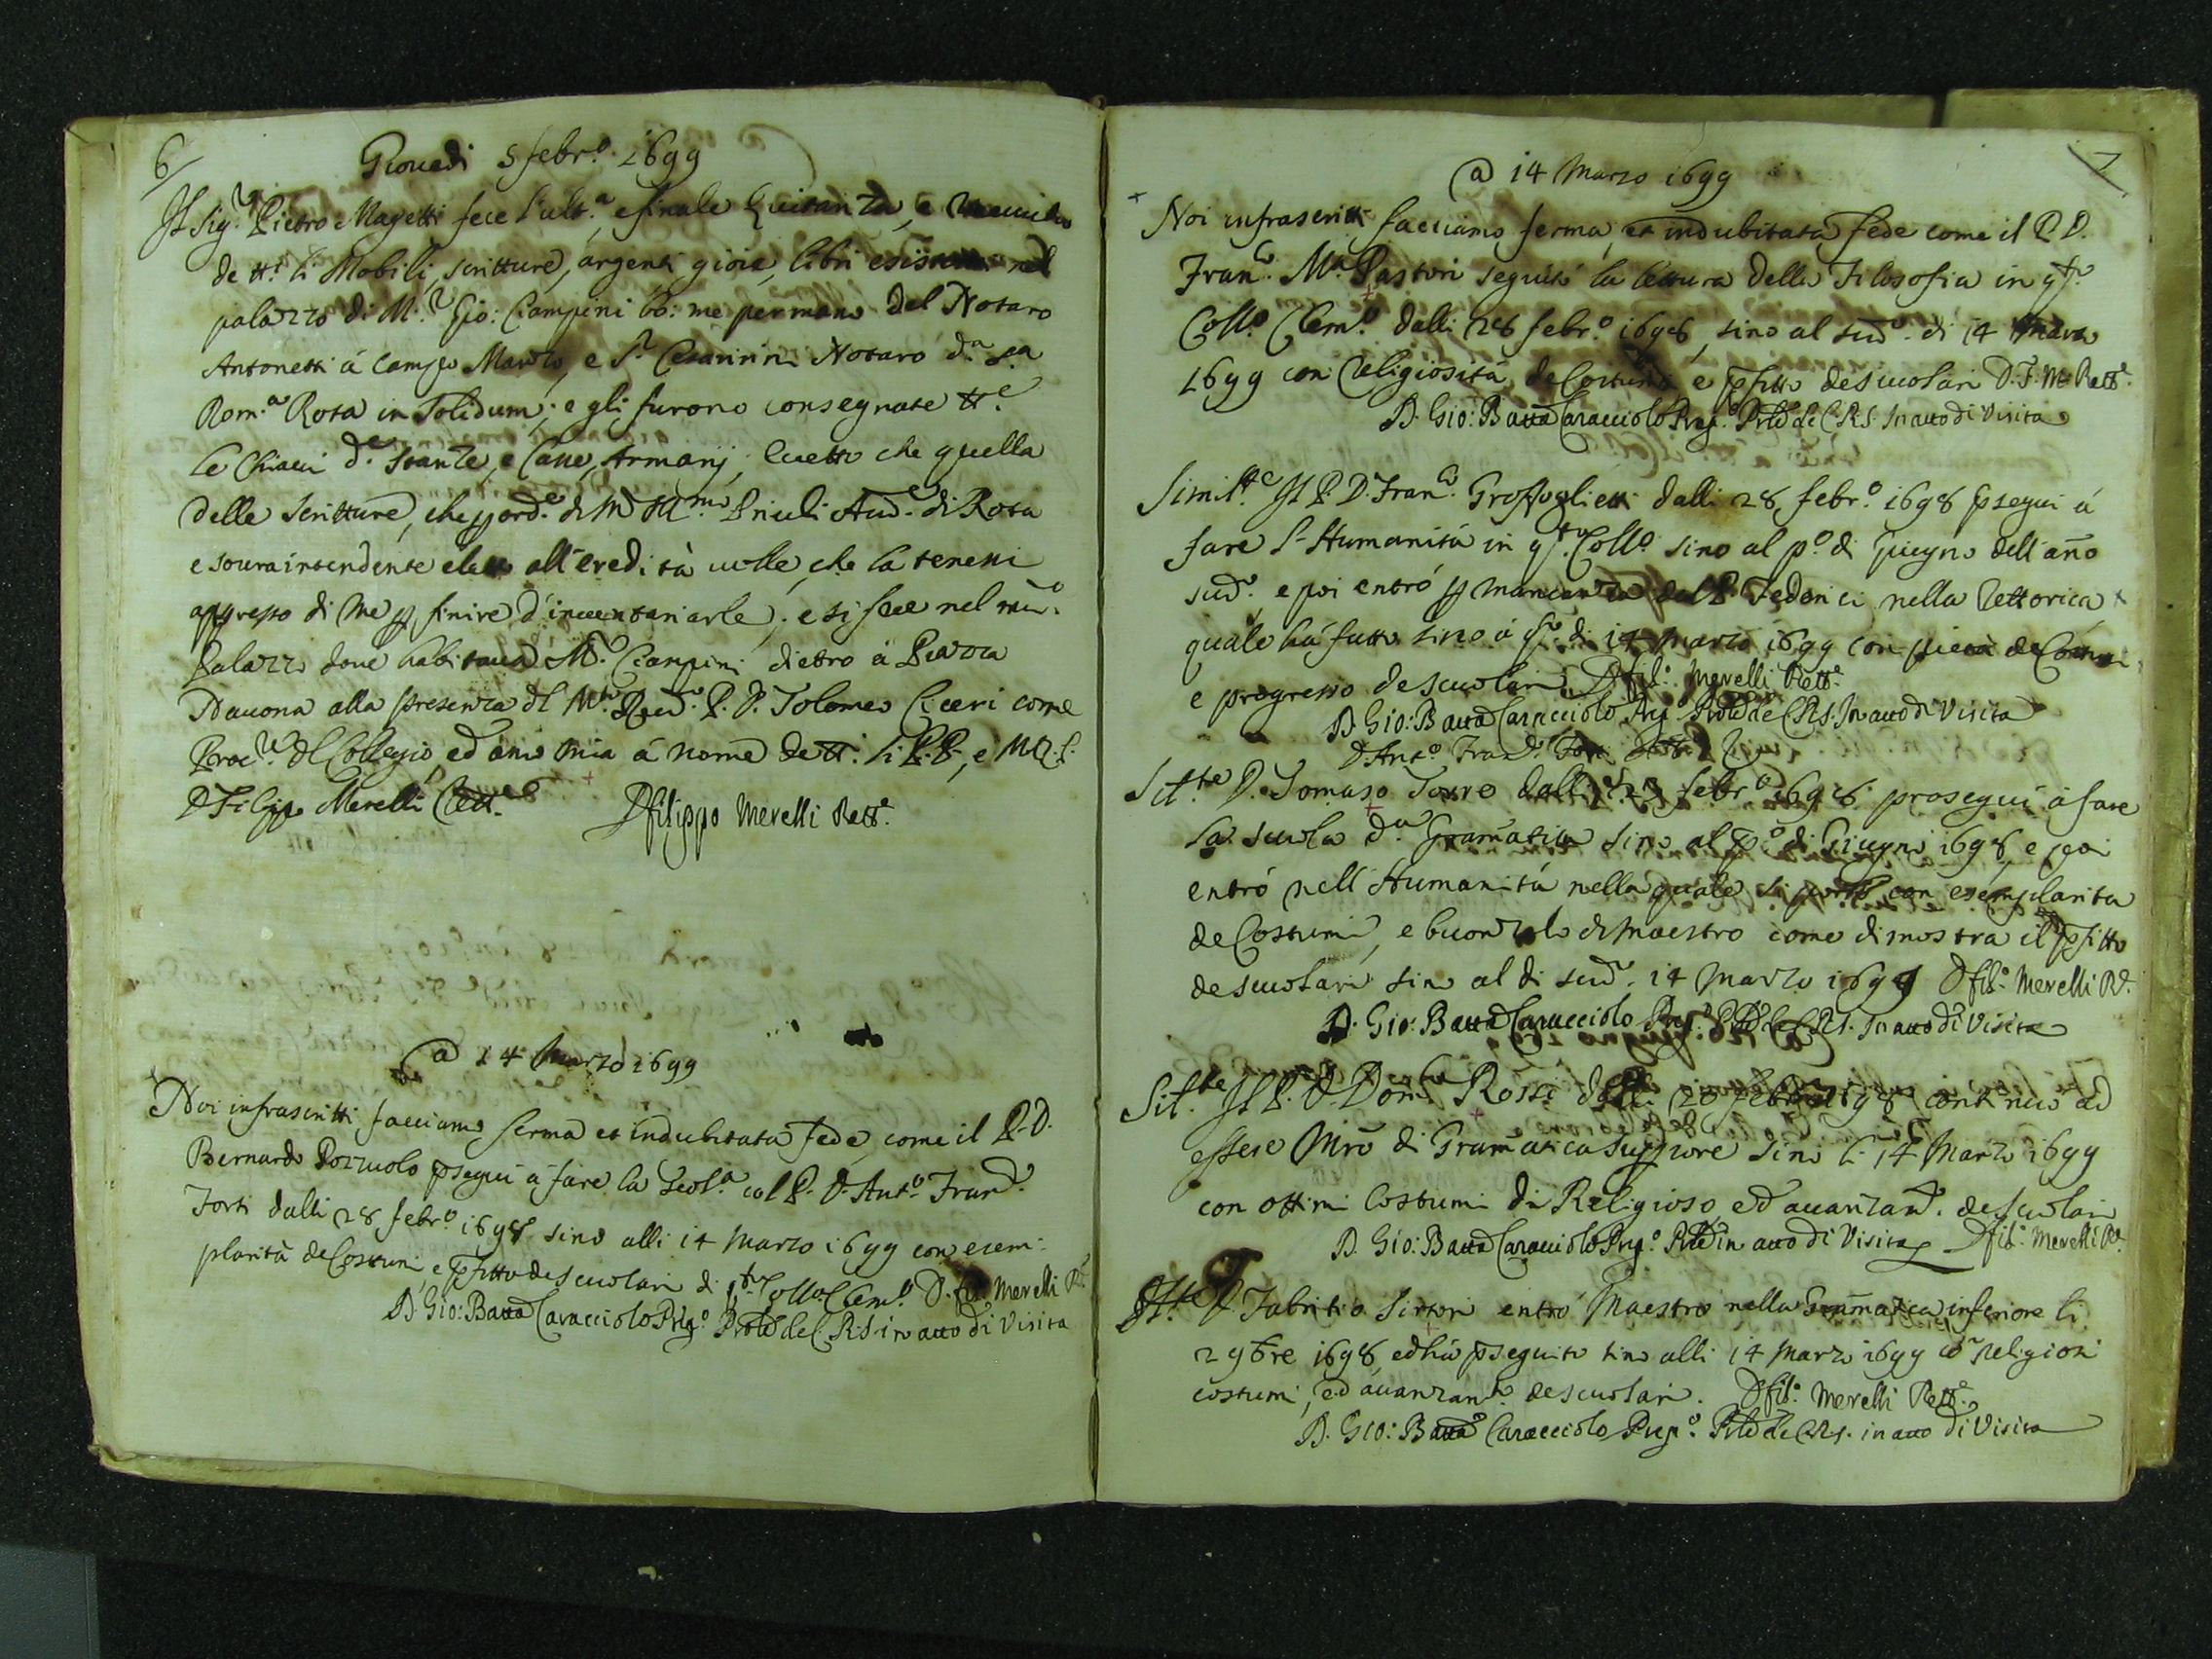 6
Giouedi 5 febr.o 1699
Il Sig.r Pietro Magetti fece l'ult.a, e finale Quitanza, e
de tt.i li Mobili, scritture, argenti, gioie, libri esistenti nel
palazzo di M.r Gio: Ciampini bo: me per mano del Notaro
Antonetti à Campo Marzo, e S.r Cesarini Notaro d.a S.a
Rom.a Rota in Solidum; e gli furono consegnate tt.e
le Chiavi d.e stanze, e Casse, Armarij, eccetto che quella
delle Scritture, che p ord.e di M Priuli Aud.e di Rota
e souraintendente eletto all'eredità uolle, che la tenessi
appresso di me p finire d'inuentariarle; e si fece nel med.o
Palazzo doue habitaua M.r Ciampini dietro à Piazza
Nauona alla presenza dl M.to Reu.do P. D. Tolomeo Ciceri come
Proc.re dl Collegio, ed anco mia à nome de tt.i li PP., e
D Filippo Merelli Rett.e D filippo Merelli Rett.e
@ 14 Marzo 1699
Noi infrascritti facciamo ferma et indubitata fede, come il P. D.
Bernardo Pozzuolo pseguì à fare la Scol.a col P. D. Ant.o Fran.co
Forti dalli 28 febr.o 1698 sino alli 14 Marzo 1699 con esem-
plarità de Costumi, e pfitto de scuolari di q.sto Coll.o Clem.o D. fil.o Merelli R.e
D. Gio: Batta Caracciolo Prep.o Prōle de C.R.S. in atto di Visita
7
@ 14 Marzo 1699
Noi infrascritti facciamo ferma, et indubitata fede come il P. D.
Fran.co M.a Pastori seguitò la lettura della Filosofia in q.sto
Coll.o Clem.o dalli 28 febr.o 1698, sino al sud.o di 14 Marzo
1699 con Religiosità de Costumi e pfitto de scuolari D. F. Me. Rett.e
D. Gio: Batta Caracciolo Prep.o Prōle de C.R.S. In atto di Visita
Simil.te Il P. D. Fran.co dalli 28 febr.o 1698 pseguì à
fare l'Humanità in q.sto Coll.o sino al p.o di Giugno dell'año
sud.o, e poi entrò p mancanza del P. Federici nella Rettorica
quale hà fatto sino à q.sto dì 14 Marzo 1699 con pietà de Costumi
e progresso de scuolari D fil.o Merelli Rett.e
D. Gio: Batta Caracciolo Prep.o Prōle de C.R.S. In atto di Visita
D Ant.o Fran.co Forti
Sil.te D. Tomaso Torre dalli 28 febr.o 1698 proseguì à fare
la scuola d.a Gramatica sino al p.o di Giugno 1698, e poi
entrò nell'Humanità, nella quale si portò con esemplarità
de Costumi, e buon zelo di Maestro come dimostra il pfitto
de scuolari sino al dì sud.o 14 Marzo 1699 D fil.o Merelli R.e
D. Gio: Batta Caracciolo Prep.o Prōle de C.R.S. In atto di Visita
Sil.te Il P. D. Dom.co Rossi dalli 28 febr.o 1698 continuò ad
essere Mro di Gramatica Suppiore sino li 14 Marzo 1699
con ottimi Costumi di Religioso, ed auanzam.to de scuolari
D. Gio: Batta Caracciolo Prep.o Prōle in atto di Visita D fil.o Merelli R.e
Il P. Fabritio Sirtori entrò Maestro nella Gramatica inferiore li
2 9bre 1698, ed hà pseguito sino alli 14 Marzo 1699 cõ religiosi
costumi, ed auanzam.to de scuolari. D fil.o Merelli Rett.e
D. Gio: Batta Caracciolo Prep.o Prōle de C.R.S. in atto di Visita